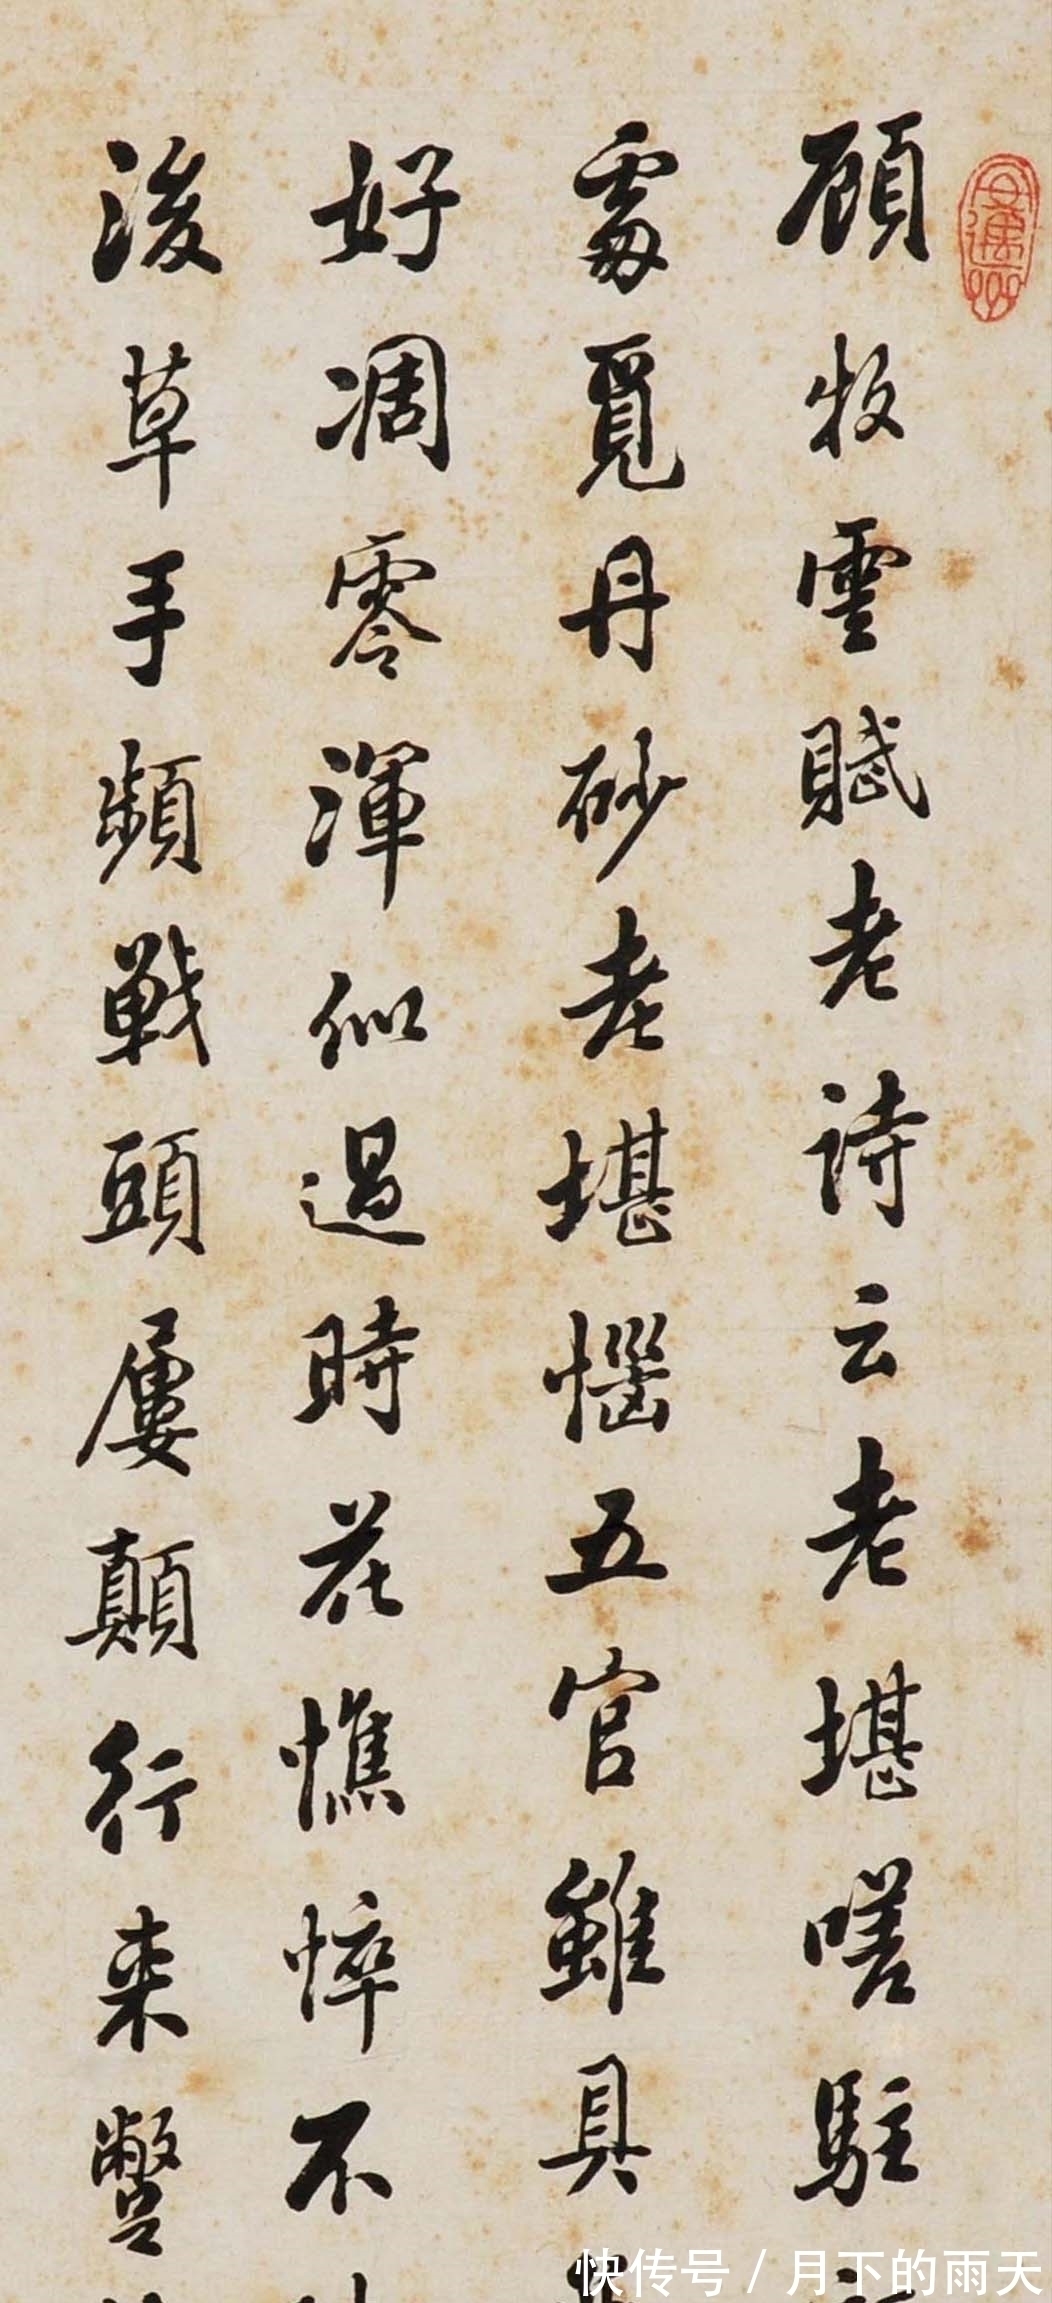 顧牧雲賦老詩云老堪嗟駐
處覓丹砂老堪惱五官雖具
好凋零渾似過時花憔悴不
後草手頻戰頭屢顛行來蹩
快传号 / 月下的雨天